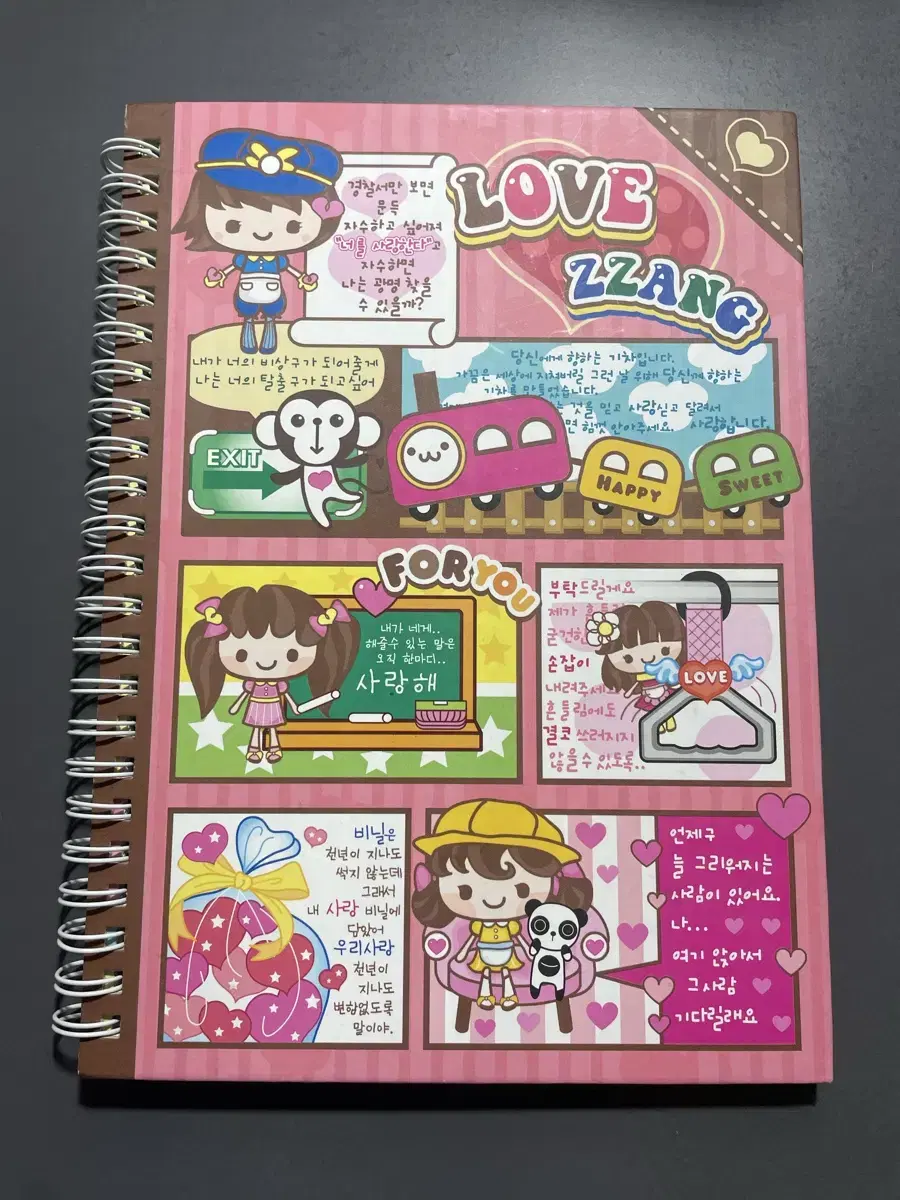 경찰서만 보면
문득
자수하고 싶어져
"너를 사랑한다"고
자수하면
나는 광명 찾을
수 있을까?
LOVE
ZZANG
내가 너의 비상구가 되어줄게
나는 너의 탈출구가 되고싶어
EXIT
당신에게 향하는 기차입니다.
가끔은 세상에 지쳐버릴 그런 날 위해 당신께 향하는
기차를 만들었습니다.
것을 믿고 사랑싣고 달려서
힘껏 안아주세요. 사랑합니다.
HAPPY
SWEET
FOR YOU
내가 네게..
해줄수 있는 말은
오직 한마디..
사랑해
부탁드릴게요
제가
굳건한
손잡이
내려주세요
흔들림에도
결코 쓰러지지
않을수 있도록..
LOVE
비닐은
천년이 지나도
썩지 않는데
그래서
내 사랑 비닐에
담았어
우리사랑
천년이
지나도
변함없도록
말이야.
언제구
늘 그리워지는
사람이 있어요.
나...
여기 앉아서
그사람
기다릴래요